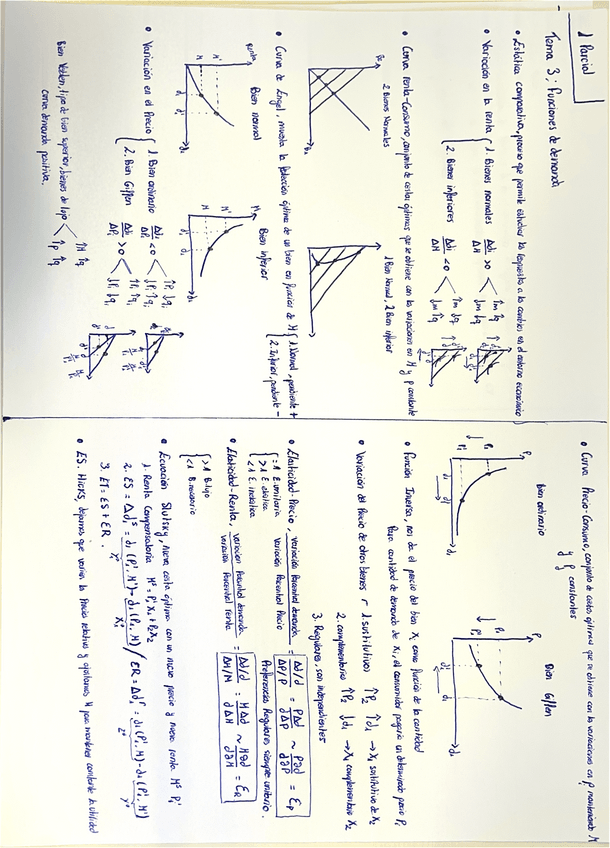 1 Parcial
Tema 3: Funciones de demanda
• Estática comparativa, proceso que permite estudiar la respuesta a los cambios en el entorno económico
• Variación en la renta { 1. Bienes normales Δdi/ΔM > 0 < ↑m ↑q ↓m ↓q
2. Bienes inferiores Δdi/ΔM < 0 < ↓m ↑q ↑m ↓q
• Curva renta-consumo, conjunto de cestas óptimas que se obtiene con las variaciones en M y p constante
2 Bienes Normales
1 Bien Normal, 2 Bien inferior
• Curva de Engel, muestra la selección óptima de un bien en función de M { 1. Normal, pendiente +
2. Inferior, pendiente -
Renta
Bien normal
Bien inferior
• Variación en el Precio { 1. Bien ordinario Δdi/ΔPi < 0 < ↑Pi ↓qi ↓Pi ↑qi
2. Bien Giffen Δdi/ΔPi > 0 < ↑Pi ↑qi ↓Pi ↓qi
Bien Veblen, tipo de bien superior, bienes de lujo < ↑M ↑q ↑p ↑q
curva demanda positiva.
• Curva Precio-Consumo, conjunto de cestas óptimas que se obtiene con las variaciones en p manteniendo M
y P constantes
Bien ordinario
Bien Giffen
• Función Inversa, nos da el precio del bien X1 como función de la cantidad
Para cantidad de demanda de X1, el consumidor pagaría un determinado precio P1
• Variación del Precio de otros bienes { 1. sustitutivos ↑P2 ↑d1 → X1 sustitutivo de X2
2. complementario ↑P2 ↓d1 → X1 complementario X2
3. Regulares, son independientes
• Elasticidad-Precio, variación Porcentual demanda / variación Porcentual Precio = Δd/d / ΔP/P = PΔd / dΔP ~ P∂d / d∂P = Ep
= 1 E. unitaria
> 1 E. elástica
< 1 E. inelástica
Preferencias Regulares siempre unitario.
• Elasticidad-Renta, variación Porcentual demanda / variación Porcentual renta = Δd/d / ΔM/M = MΔd / dΔM ~ M∂d / d∂M = ER
> 1 B. lujo
< 1 B. necesario
• Ecuación Slutsky, nueva cesta óptima con un nuevo precio y nueva renta M^s P1'
1. Renta Compensatoria M^s = P1' X1 + P2 X2
2. ES = Δd1^s = d1 (P1', M^s) - d1 (P1, M) / ER = Δd1^r = d1 (P1', M) - d1 (P1', M^s)
3. ET = ES + ER.
• ES. Hicks, dejamos que varíen los Precios relativos y ajustamos M para mantener constante la utilidad